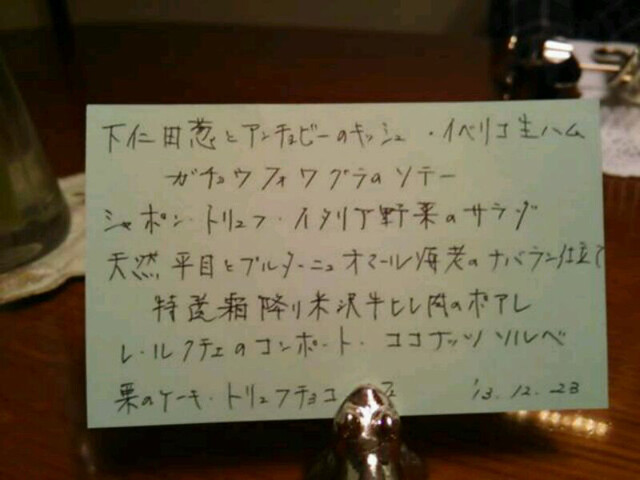 下仁田葱とアンチョビーのキッシュ ・イベリコ生ハム
ガチョウフォワグラのソテー
シャポン・トリュフ・イタリア野菜のサラダ
天然平目とブルターニュオマール海老のナバラン仕立て
特選霜降り米沢牛ヒレ肉のポアレ
レ・ルクチェのコンポート・ココナッツソルベ
栗のケーキ・トリュフチョコ
'13.12.23